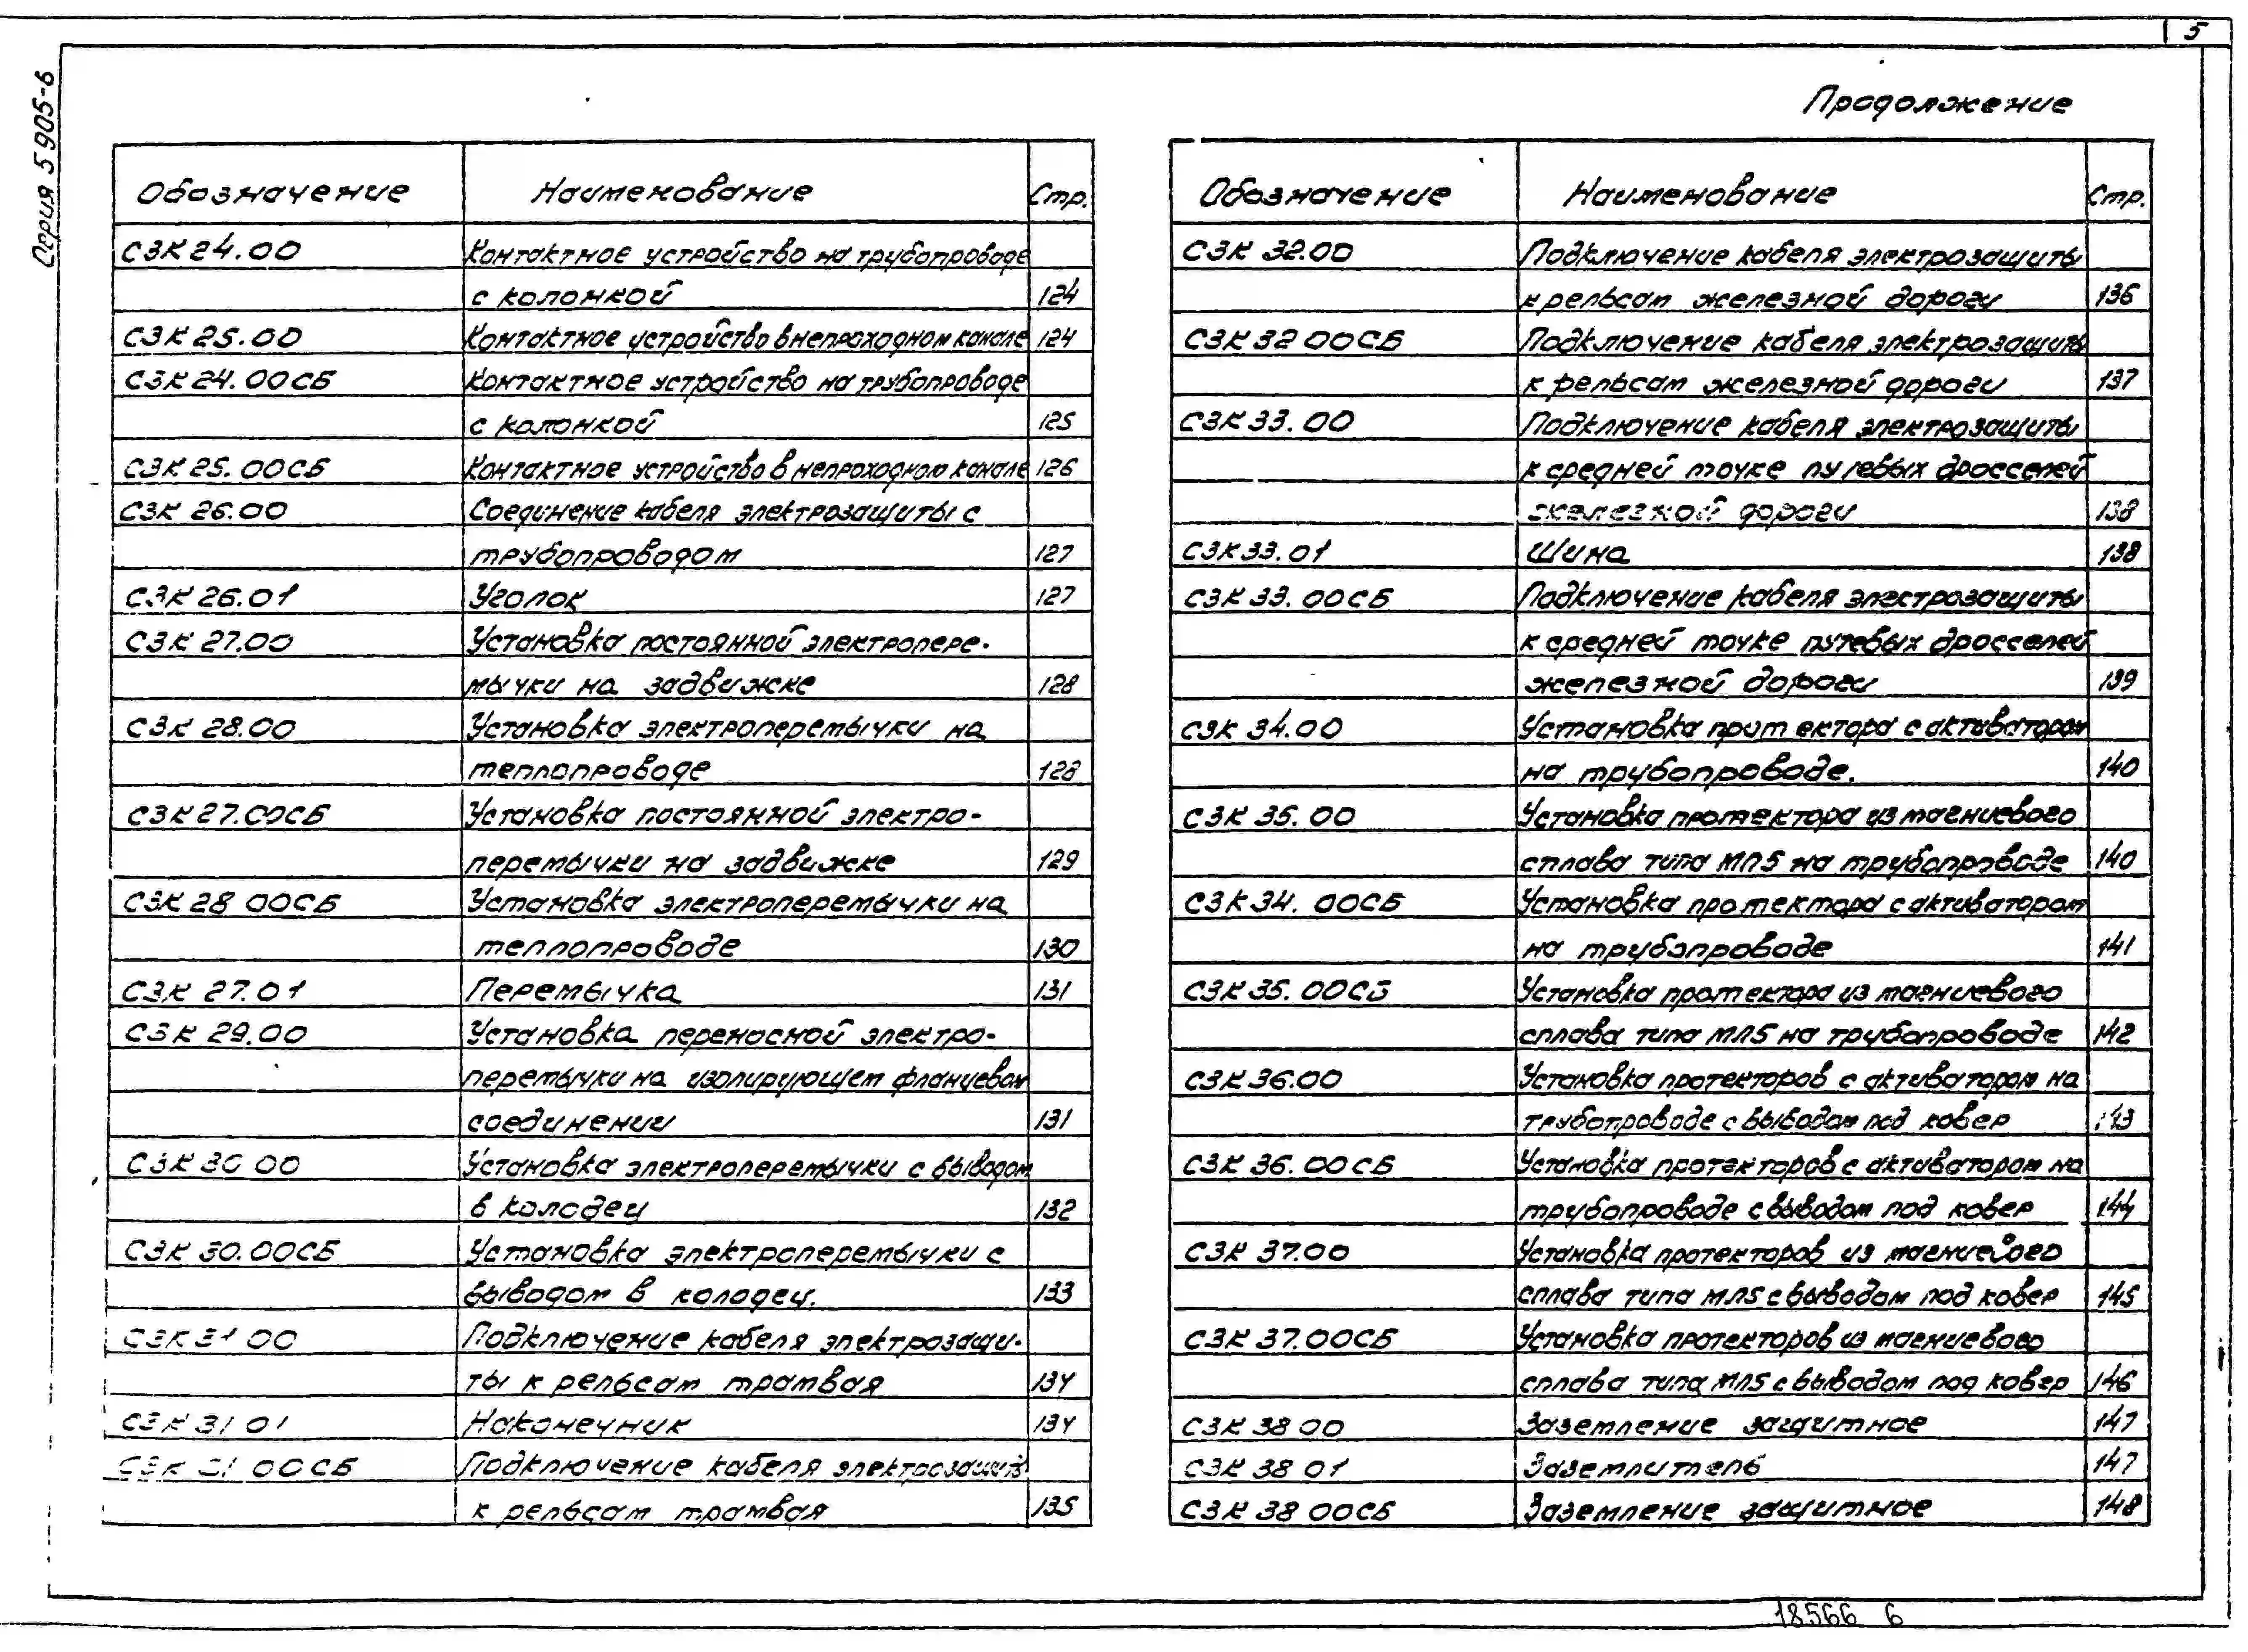 5
Серия 5905-6
Продолжение
Обозначение Наименование Стр.
СЗК 24.00 Контактное устройство на трубопроводе
с колонкой 124
СЗК 25.00 Контактное устройство в непроходном канале 124
СЗК 24.00СБ Контактное устройство на трубопроводе
с колонкой 125
СЗК 25.00СБ Контактное устройство в непроходном канале 126
СЗК 26.00 Соединение кабеля электрозащиты с
трубопроводом 127
СЗК 26.01 Уголок 127
СЗК 27.00 Установка постоянной электропере-
мычки на задвижке 128
СЗК 28.00 Установка электроперемычки на
теплопроводе 128
СЗК 27.00СБ Установка постоянной электро-
перемычки на задвижке 129
СЗК 28 00СБ Установка электроперемычки на
теплопроводе 130
СЗК 27.01 Перемычка 131
СЗК 29.00 Установка переносной электро-
перемычки на изолирующем фланцевом
соединении 131
СЗК 30 00 Установка электроперемычки с выводом
в колодец 132
СЗК 30.00СБ Установка электроперемычки с
выводом в колодец. 133
СЗК 31 00 Подключение кабеля электрозащи-
ты к рельсам трамвая 134
СЗК 31 01 Наконечник 134
СЗК 31 00СБ Подключение кабеля электрозащиты
к рельсам трамвая 135
Обозначение Наименование Стр.
СЗК 32.00 Подключение кабеля электрозащиты
к рельсам железной дороги 136
СЗК 32 00СБ Подключение кабеля электрозащиты
к рельсам железной дороги 137
СЗК 33.00 Подключение кабеля электрозащиты
к средней точке путевых дросселей
железной дороги 138
СЗК 33.01 Шина 138
СЗК 33.00СБ Подключение кабеля электрозащиты
к средней точке путевых дросселей
железной дороги 139
СЗК 34.00 Установка протектора с активатором
на трубопроводе. 140
СЗК 35.00 Установка протектора из магниевого
сплава типа МЛ5 на трубопроводе 140
СЗК 34.00СБ Установка протектора с активатором
на трубопроводе 141
СЗК 35.00СБ Установка протектора из магниевого
сплава типа МЛ5 на трубопроводе 142
СЗК 36.00 Установка протекторов с активатором на
трубопроводе с выводом под ковер 143
СЗК 36.00СБ Установка протекторов с активатором на
трубопроводе с выводом под ковер 144
СЗК 37.00 Установка протекторов из магниевого
сплава типа МЛ5 с выводом под ковер 145
СЗК 37.00СБ Установка протекторов из магниевого
сплава типа МЛ5 с выводом под ковер 146
СЗК 38 00 Заземление защитное 147
СЗК 38 01 Заземлитель 147
СЗК 38 00СБ Заземление защитное 148
18566 6